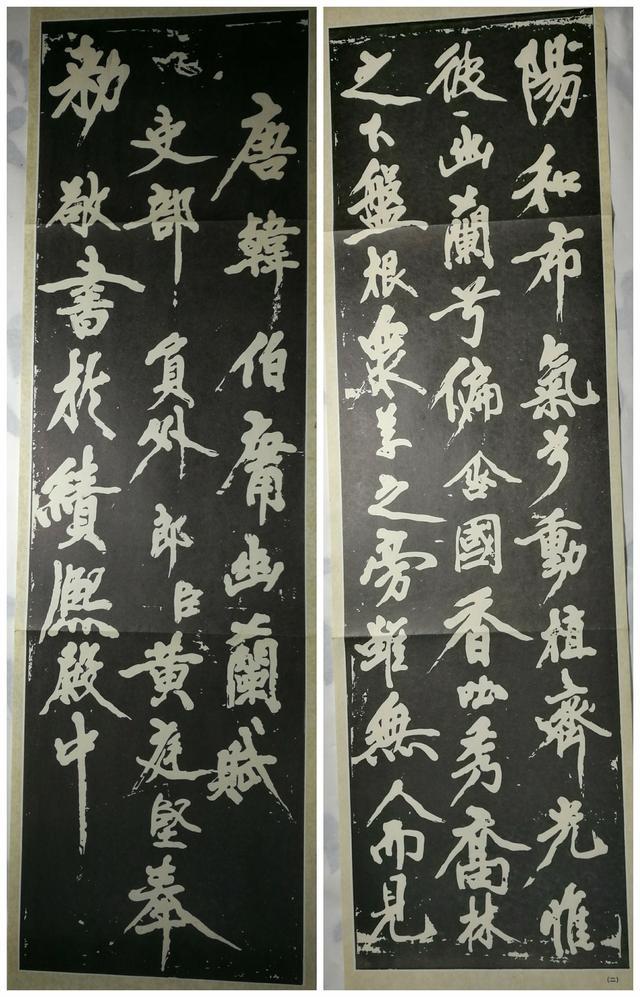 唐韓伯庸幽蘭賦
吏部員外郎臣黄庭堅奉
勅敬書於績熙殿中
陽和布氣兮動植齊光惟
彼幽蘭兮偏含國香吐秀喬林
之下盤根衆草之旁雖無人而見
(二)